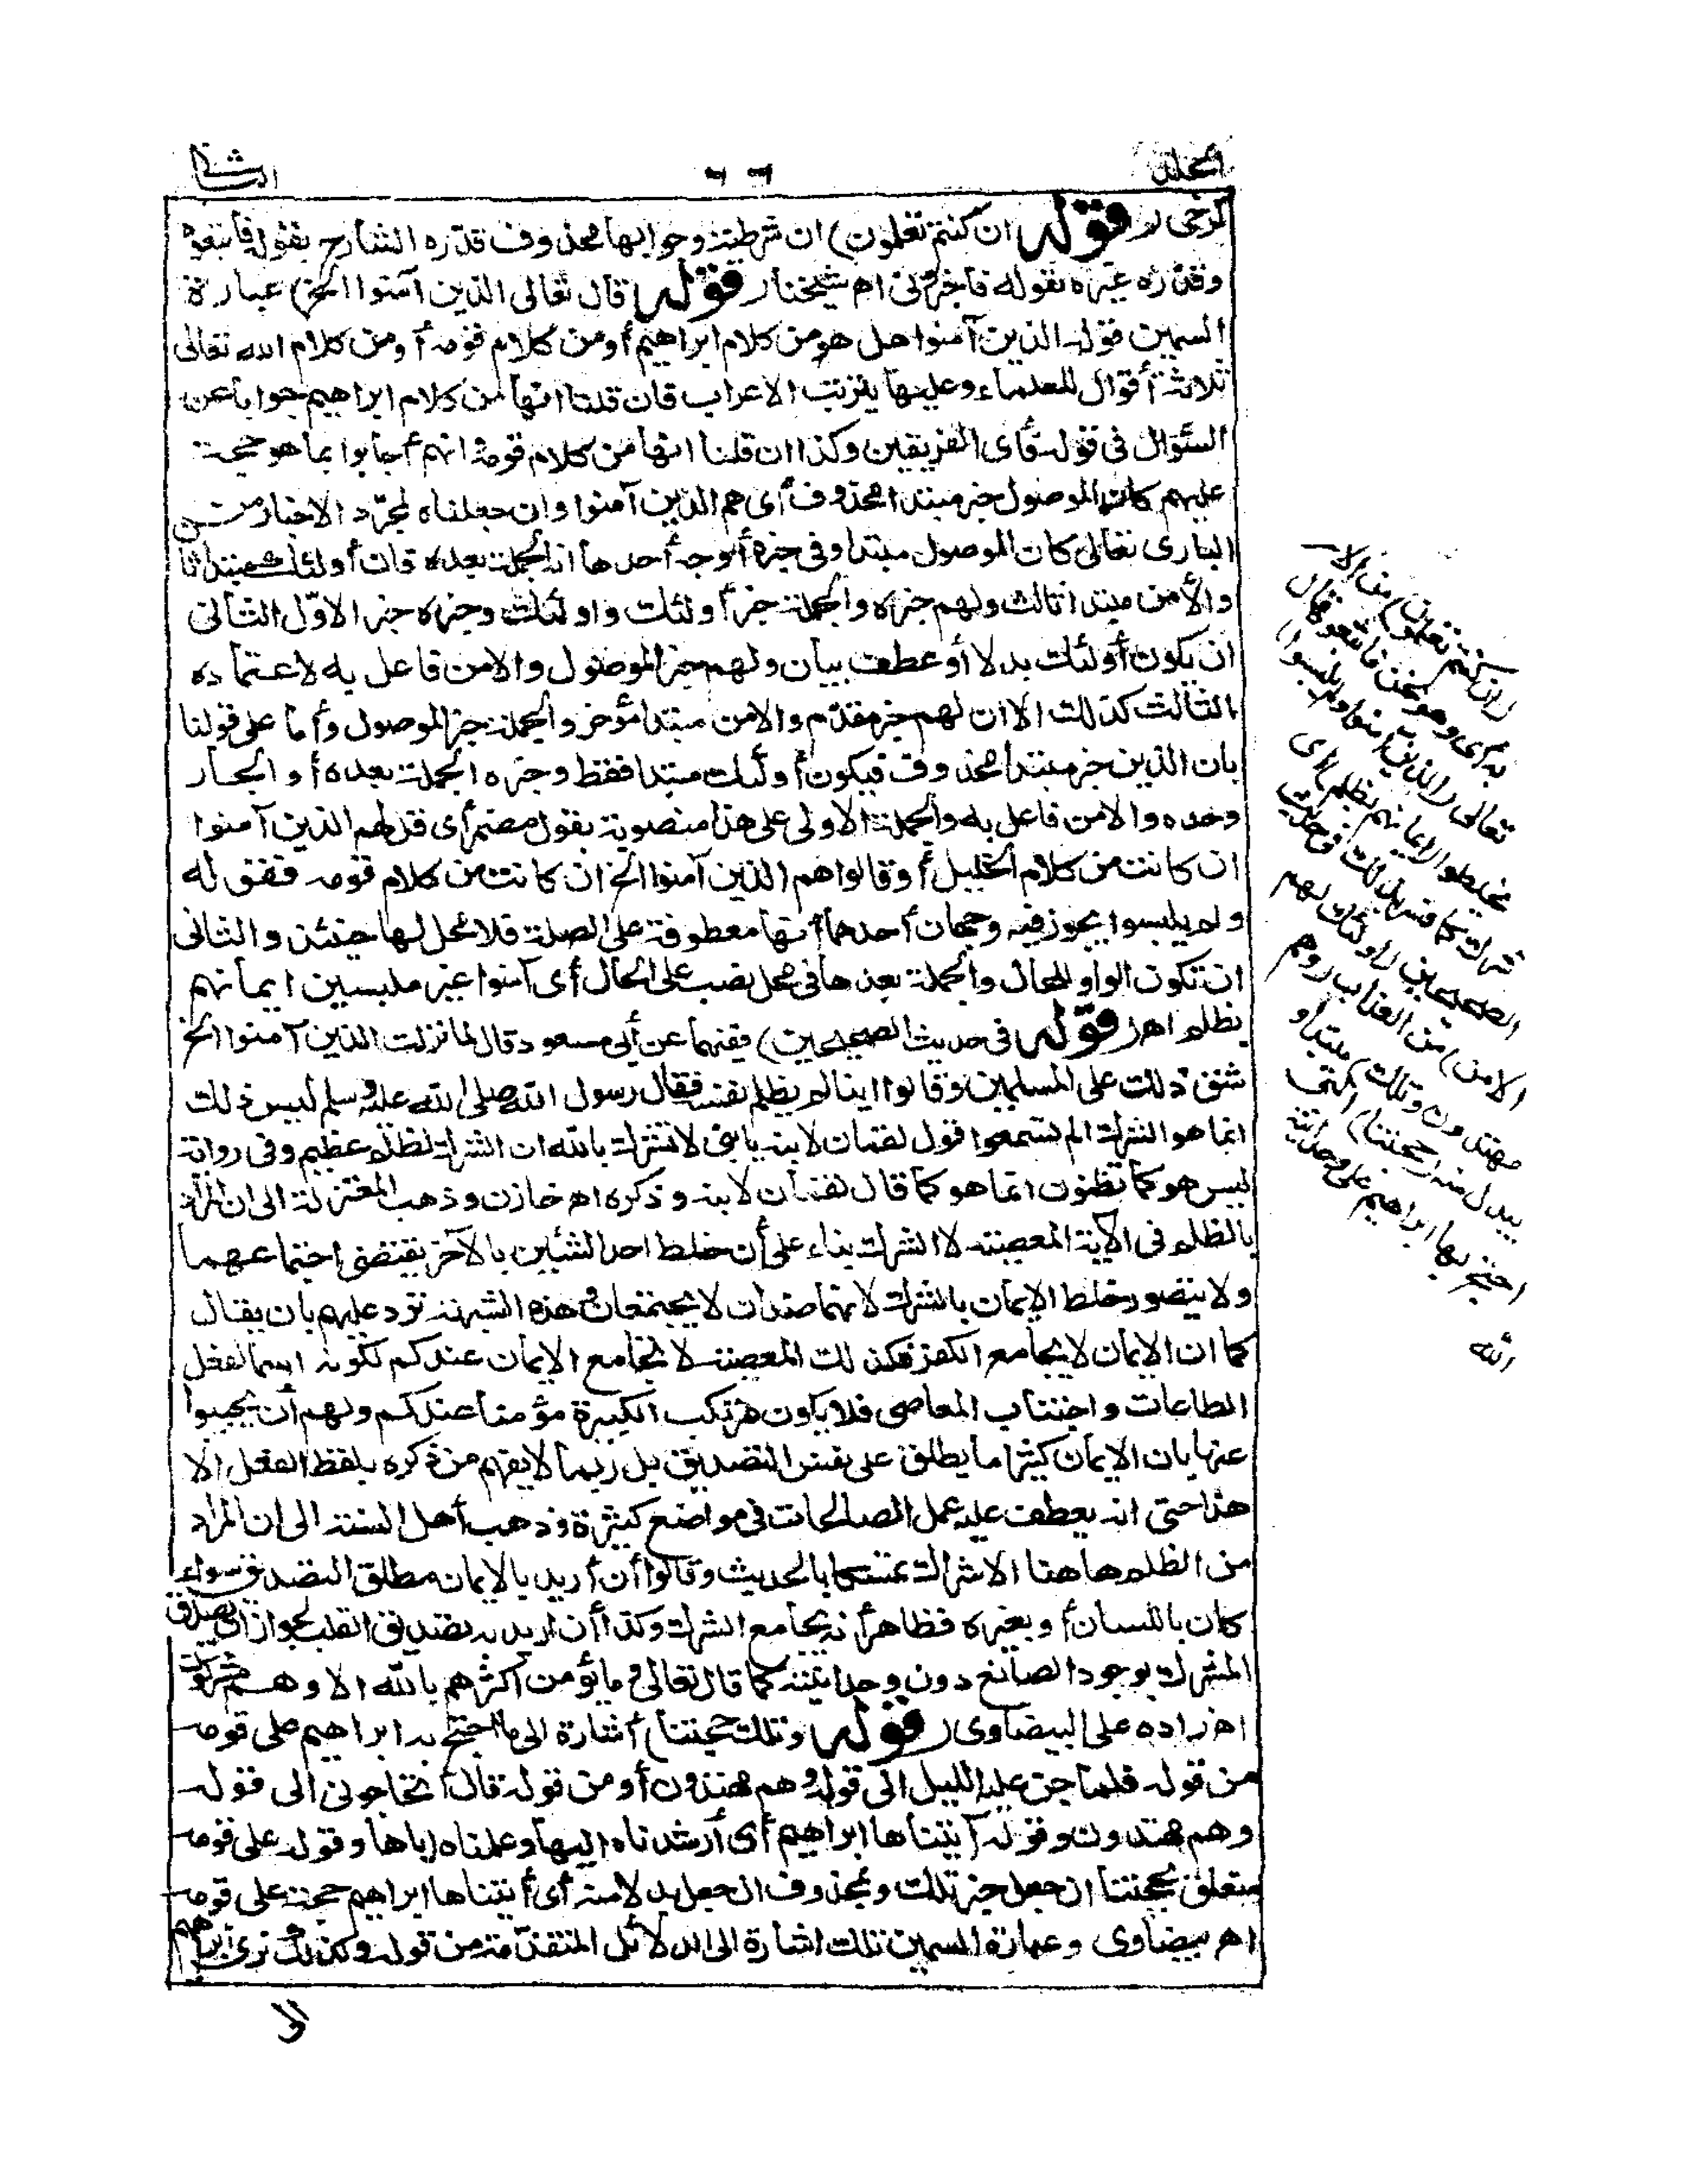 المجلد
٦٦
الثانى
كرخى (قوله ان كنتم تعلمون) ان شرطية وجوابها محذوف قدّره الشارح بقوله فاتبعوه
وقدّره غيره بقوله فاخبرونى اه شيخنا (قوله قال تعالى الذين آمنوا الخ) عبارة
السمين قوله الذين آمنوا هل هو من كلام ابراهيم أو من كلام قومه أو من كلام الله تعالى
ثلاثة أقوال للعلماء وعليها يترتب الاعراب فان قلنا انها من كلام ابراهيم جوابا عن
السؤال فى قوله فأى الفريقين وكذا ان قلنا انها من كلام قومه وانهم أجابوا بما هو حجة
عليهم كان الموصول خبر مبتدا محذوف أى هم الذين آمنوا وان جعلناه لمجرّد الاخبار من
البارى تعالى كان الموصول مبتدا وفى خبره أوجه أحدها انه الجملة بعده فان أولئك مبتدا ثا
والأمن مبتدا ثالث ولهم خبره والجملة خبر أولئك واولئك وخبره خبر الاوّل الثانى
ان يكون أولئك بدلا أو عطف بيان ولهم خبر الموصول والامن فاعل به لاعتماده
الثالث كذلك الا ان لهم خبر مقدّم والامن مبتدا مؤخر والجملة خبر الموصول وأما على قولنا
بان الذين خبر مبتدا محذوف فيكون أولئك مبتدا فقط وخبره الجملة بعده أو الجار
وحده والامن فاعل به والجملة الاولى على هذا منصوبة بقول مضمر أى قل لهم الذين آمنوا
ان كانت من كلام الخليل أو قالوا هم الذين آمنوا الخ ان كانت من كلام قومه فقوله
ولم يلبسوا يجوز فيه وجهان أحدهما انها معطوفة على الصلة فلا محل لها حينئذ والثانى
ان تكون الواو للحال والجملة بعدها فى محل نصب على الحال أى آمنوا غير ملبسين ايمانهم
بظلم اه (قوله فى حديث الصحيحين) ففيهما عن أبى مسعود قال لما نزلت الذين آمنوا الخ
شق ذلك على المسلمين وقالوا اينا لم يظلم نفسه فقال رسول الله صلى الله عليه وسلم ليس ذلك
انما هو الشرك الم تسمعوا قول لقمان لابنه يا بنى لا تشرك بالله ان الشرك لظلم عظيم وفى رواية
ليس هو كما تظنون انما هو كما قال لقمان لابنه وذكره اه خازن وذهب المعتزلة الى ان المراد
بالظلم فى الآية المعصية لا الشرك بناء على أن خلط احد الشيئين بالآخر يقتضى اجتماعهما
ولا يتصور خلط الايمان بالشرك لانهما ضدان لا يجتمعان وهذه الشبهة ترد عليهم بان يقال
كما ان الايمان لا يجامع الكفر فكذلك المعصية لا تجامع الايمان عندكم لكونه اسما لفعل
الطاعات واجتناب المعاصى فلا يكون مرتكب الكبيرة مؤمنا عندكم ولهم أن يجيبوا
عنها بان الايمان كثيرا ما يطلق على نفس التصديق بل ربما لا يفهم من ذكره بلفظ الفعل الا
هذا حتى انه يعطف عليه عمل الصالحات فى مواضع كثيرة وذهب أهل السنة الى ان المراد
من الظلم هاهنا الاشراك تمسكا بالحديث وقالوا أن أريد بالايمان مطلق التصديق سواء
كان باللسان أو بغيره فظاهر أنه يجامع الشرك وكذا أن اريد به تصديق القلب لجواز ان يصدق
المشرك بوجود الصانع دون وحدانيته كما قال تعالى وما يؤمن اكثرهم بالله الا وهم مشركون
اه زاده على البيضاوى (قوله وتلك حجتنا) أشارة الى ما احتج به ابراهيم على قومه
من قوله فلما جن عليه الليل الى قوله وهم مهتدون أو من قوله قال أتحاجونى الى قوله
وهم مهتدون وقوله آتيناها ابراهيم أى أرشدناه اليها وعلمناه اياها وقوله على قومه
متعلق بحجتنا ان جعل خبر تلك وبمحذوف ان جعل بدلا منه أى أتيناها ابراهيم حجة على قومه
اه بيضاوى وعبارة السمين تلك اشارة الى الدلائل المتقدّمة من قوله وكذلك نرى ابراهيم
(ان كنتم تعلمون) من الا
به أى وهو نحن فاتبعوه قال
تعالى (الذين آمنوا ولم يلبسوا)
يخلطوا (ايمانهم بظلم) أى
شرك كما فسر بذلك فى حديث
الصحيحين (أولئك لهم
الامن) من العذاب (وهم
مهتدون وتلك) مبتدا و
يبدل منه (حجتنا) التى
احتج بها ابراهيم على وحدانية
الله